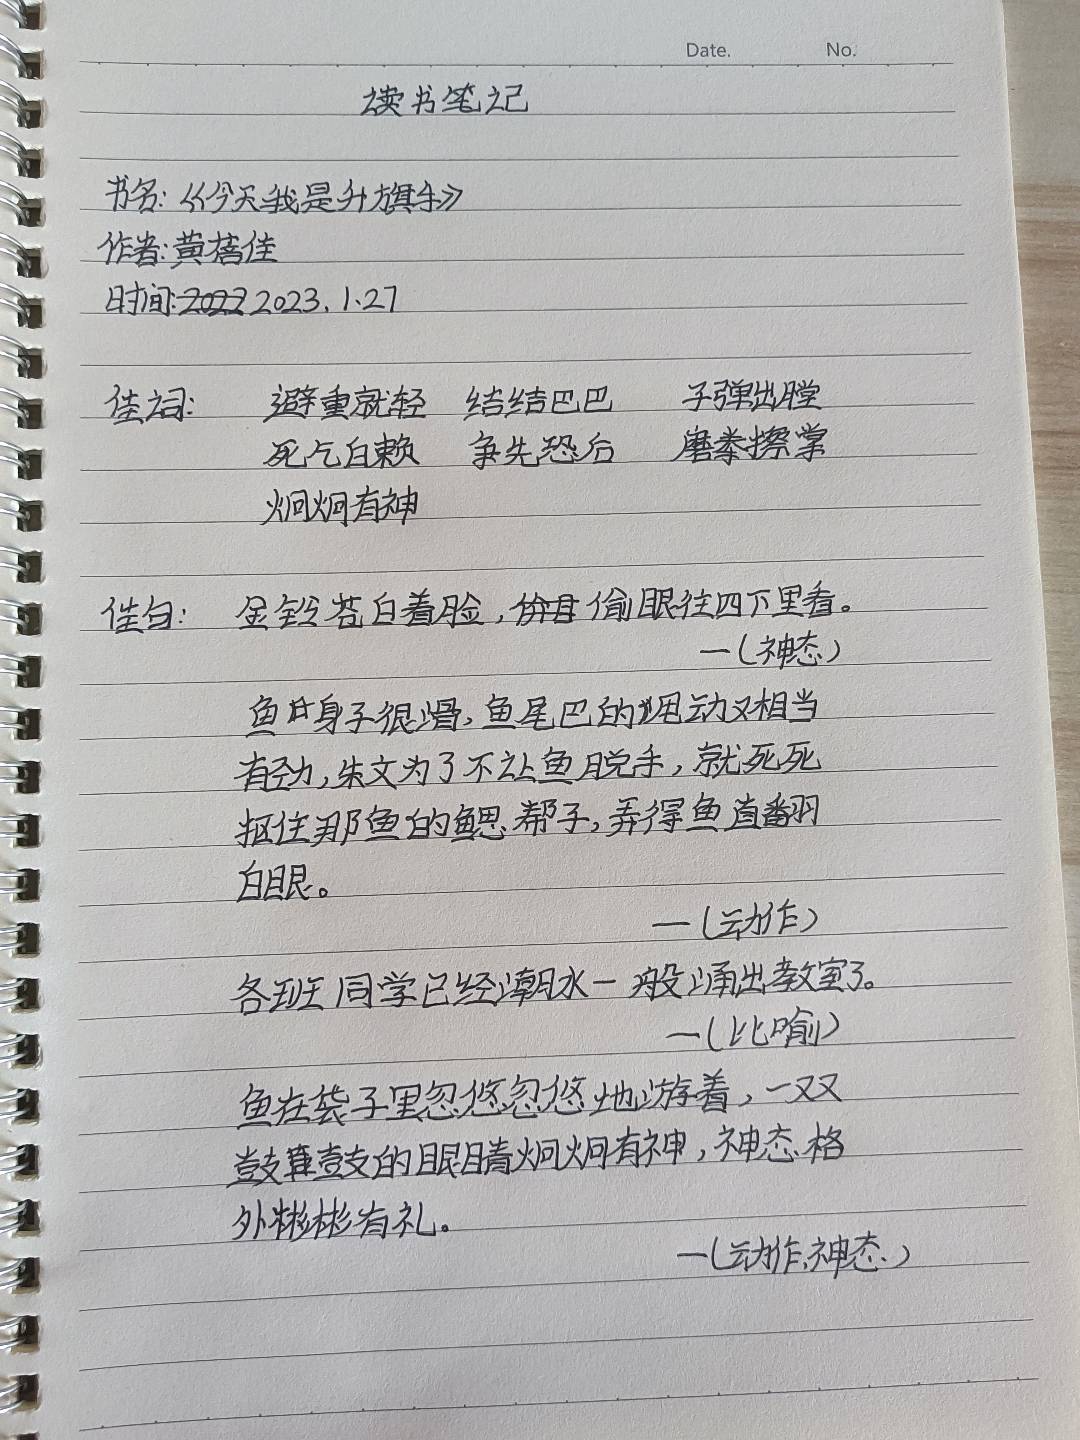 Date. No.
读书笔记
书名:《今天我是升旗手》
作者:黄蓓佳
时间:2023.1.27
佳词: 避重就轻 结结巴巴 子弹出膛
死乞白赖 争先恐后 磨拳擦掌
炯炯有神
佳句: 金铃苍白着脸,偷眼往四下里看。
—(神态)
鱼身子很滑,鱼尾巴的甩动又相当
有劲,朱文为了不让鱼脱手,就死死
抠住那鱼的鳃帮子,弄得鱼直翻
白眼。
—(动作)
各班同学已经潮水一般涌出教室了。
—(比喻)
鱼在袋子里忽悠忽悠地游着,一双
鼓鼓的眼睛炯炯有神,神态格
外彬彬有礼。
—(动作、神态、)